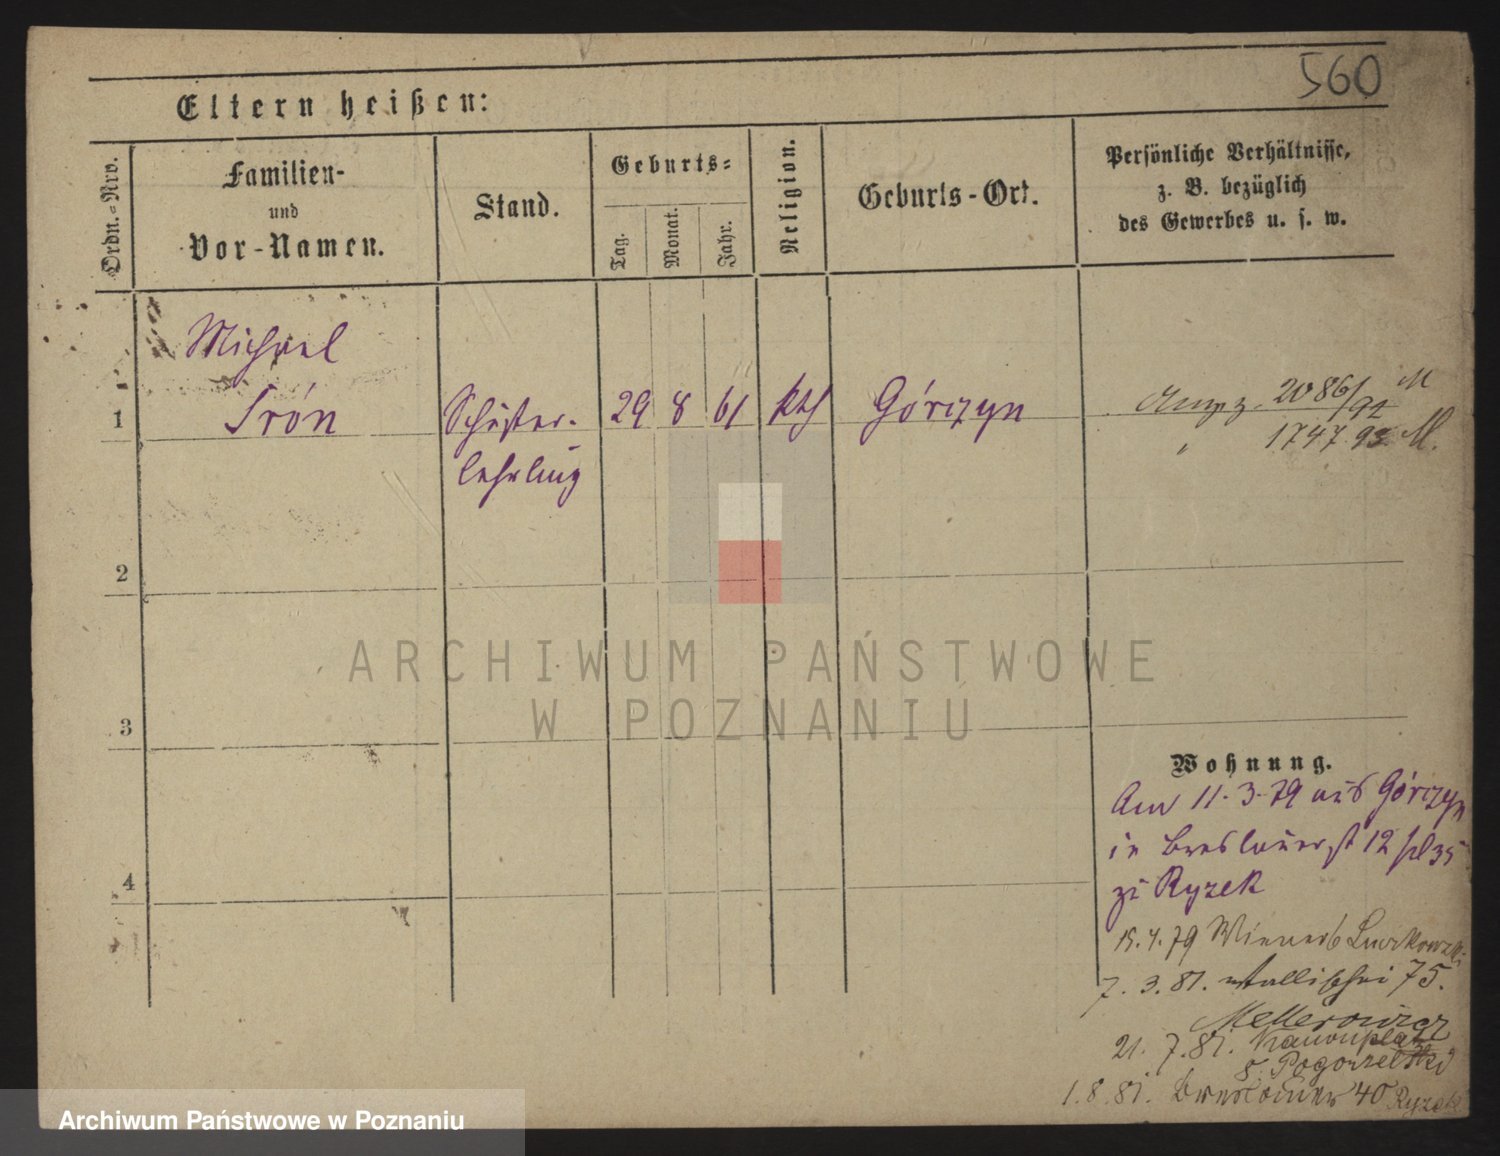 560
Eltern heißen:
Ordn.-Nro.
Familien-
und
Vor-Namen.
Stand.
Geburts-
Tag.
Monat.
Jahr.
Religion.
Geburts-Ort.
Persönliche Verhältnisse,
z. B. bezüglich
des Gewerbes u. s. w.
Michael
1 Srón Schuster- 29 8 61 kth Górczyn 2086/92 M
lehrling
1747 93 M.
2
ARCHIWUM PAŃSTWOWE
W POZNANIU
3
Wohnung.
Am 11.3.79 aus Górczyn
in Breslauerst 12
zu Ryzek
4
15.4.79 Wiener 6
7.3.81. Wallischei 75.
21.7.81. Kanonenplatz
8.
1.8.81. Breslauer 40 Ryzek
Archiwum Państwowe w Poznaniu